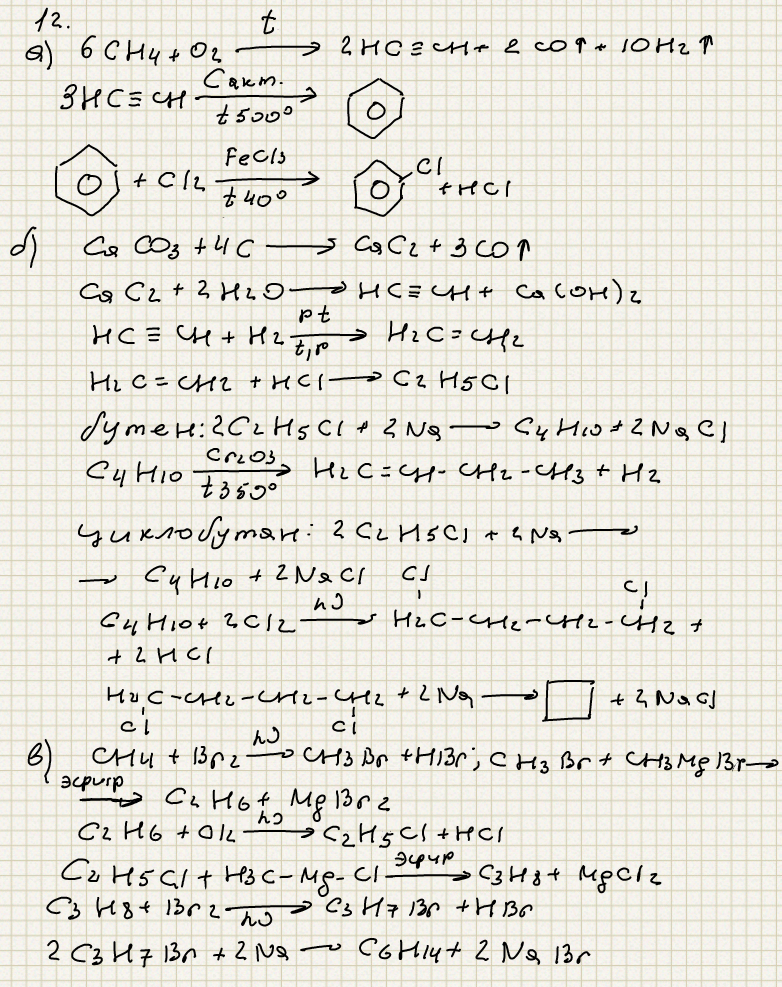 12.
а) 6 CH4 + O2 —t→ 2HC≡CH + 2 CO↑ + 10H2↑
3HC≡CH —Cакт. t 500°→
+ Cl2 —FeCl3 t 40°→ Cl + HCl
б) CaCO3 + 4C → CaC2 + 3CO↑
CaC2 + 2H2O → HC≡CH + Ca(OH)2
HC≡CH + H2 —pt t,p→ H2C=CH2
H2C=CH2 + HCl → C2H5Cl
бутен: 2C2H5Cl + 2Na → C4H10 + 2NaCl
C4H10 —Cr2O3 t 350°→ H2C=CH-CH2-CH3 + H2
циклобутан: 2C2H5Cl + 2Na →
→ C4H10 + 2NaCl Cl Cl
C4H10 + 2Cl2 —hν→ H2C-CH2-CH2-CH2 +
+ 2HCl
H2C-CH2-CH2-CH2 + 2Na → + 2NaCl
Cl Cl
в) CH4 + Br2 —hν→ CH3Br + HBr; CH3Br + CH3MgBr →
—эфир→ C2H6 + MgBr2
C2H6 + Cl2 —hν→ C2H5Cl + HCl
C2H5Cl + H3C-Mg-Cl —эфир→ C3H8 + MgCl2
C3H8 + Br2 —hν→ C3H7Br + HBr
2C3H7Br + 2Na → C6H14 + 2NaBr